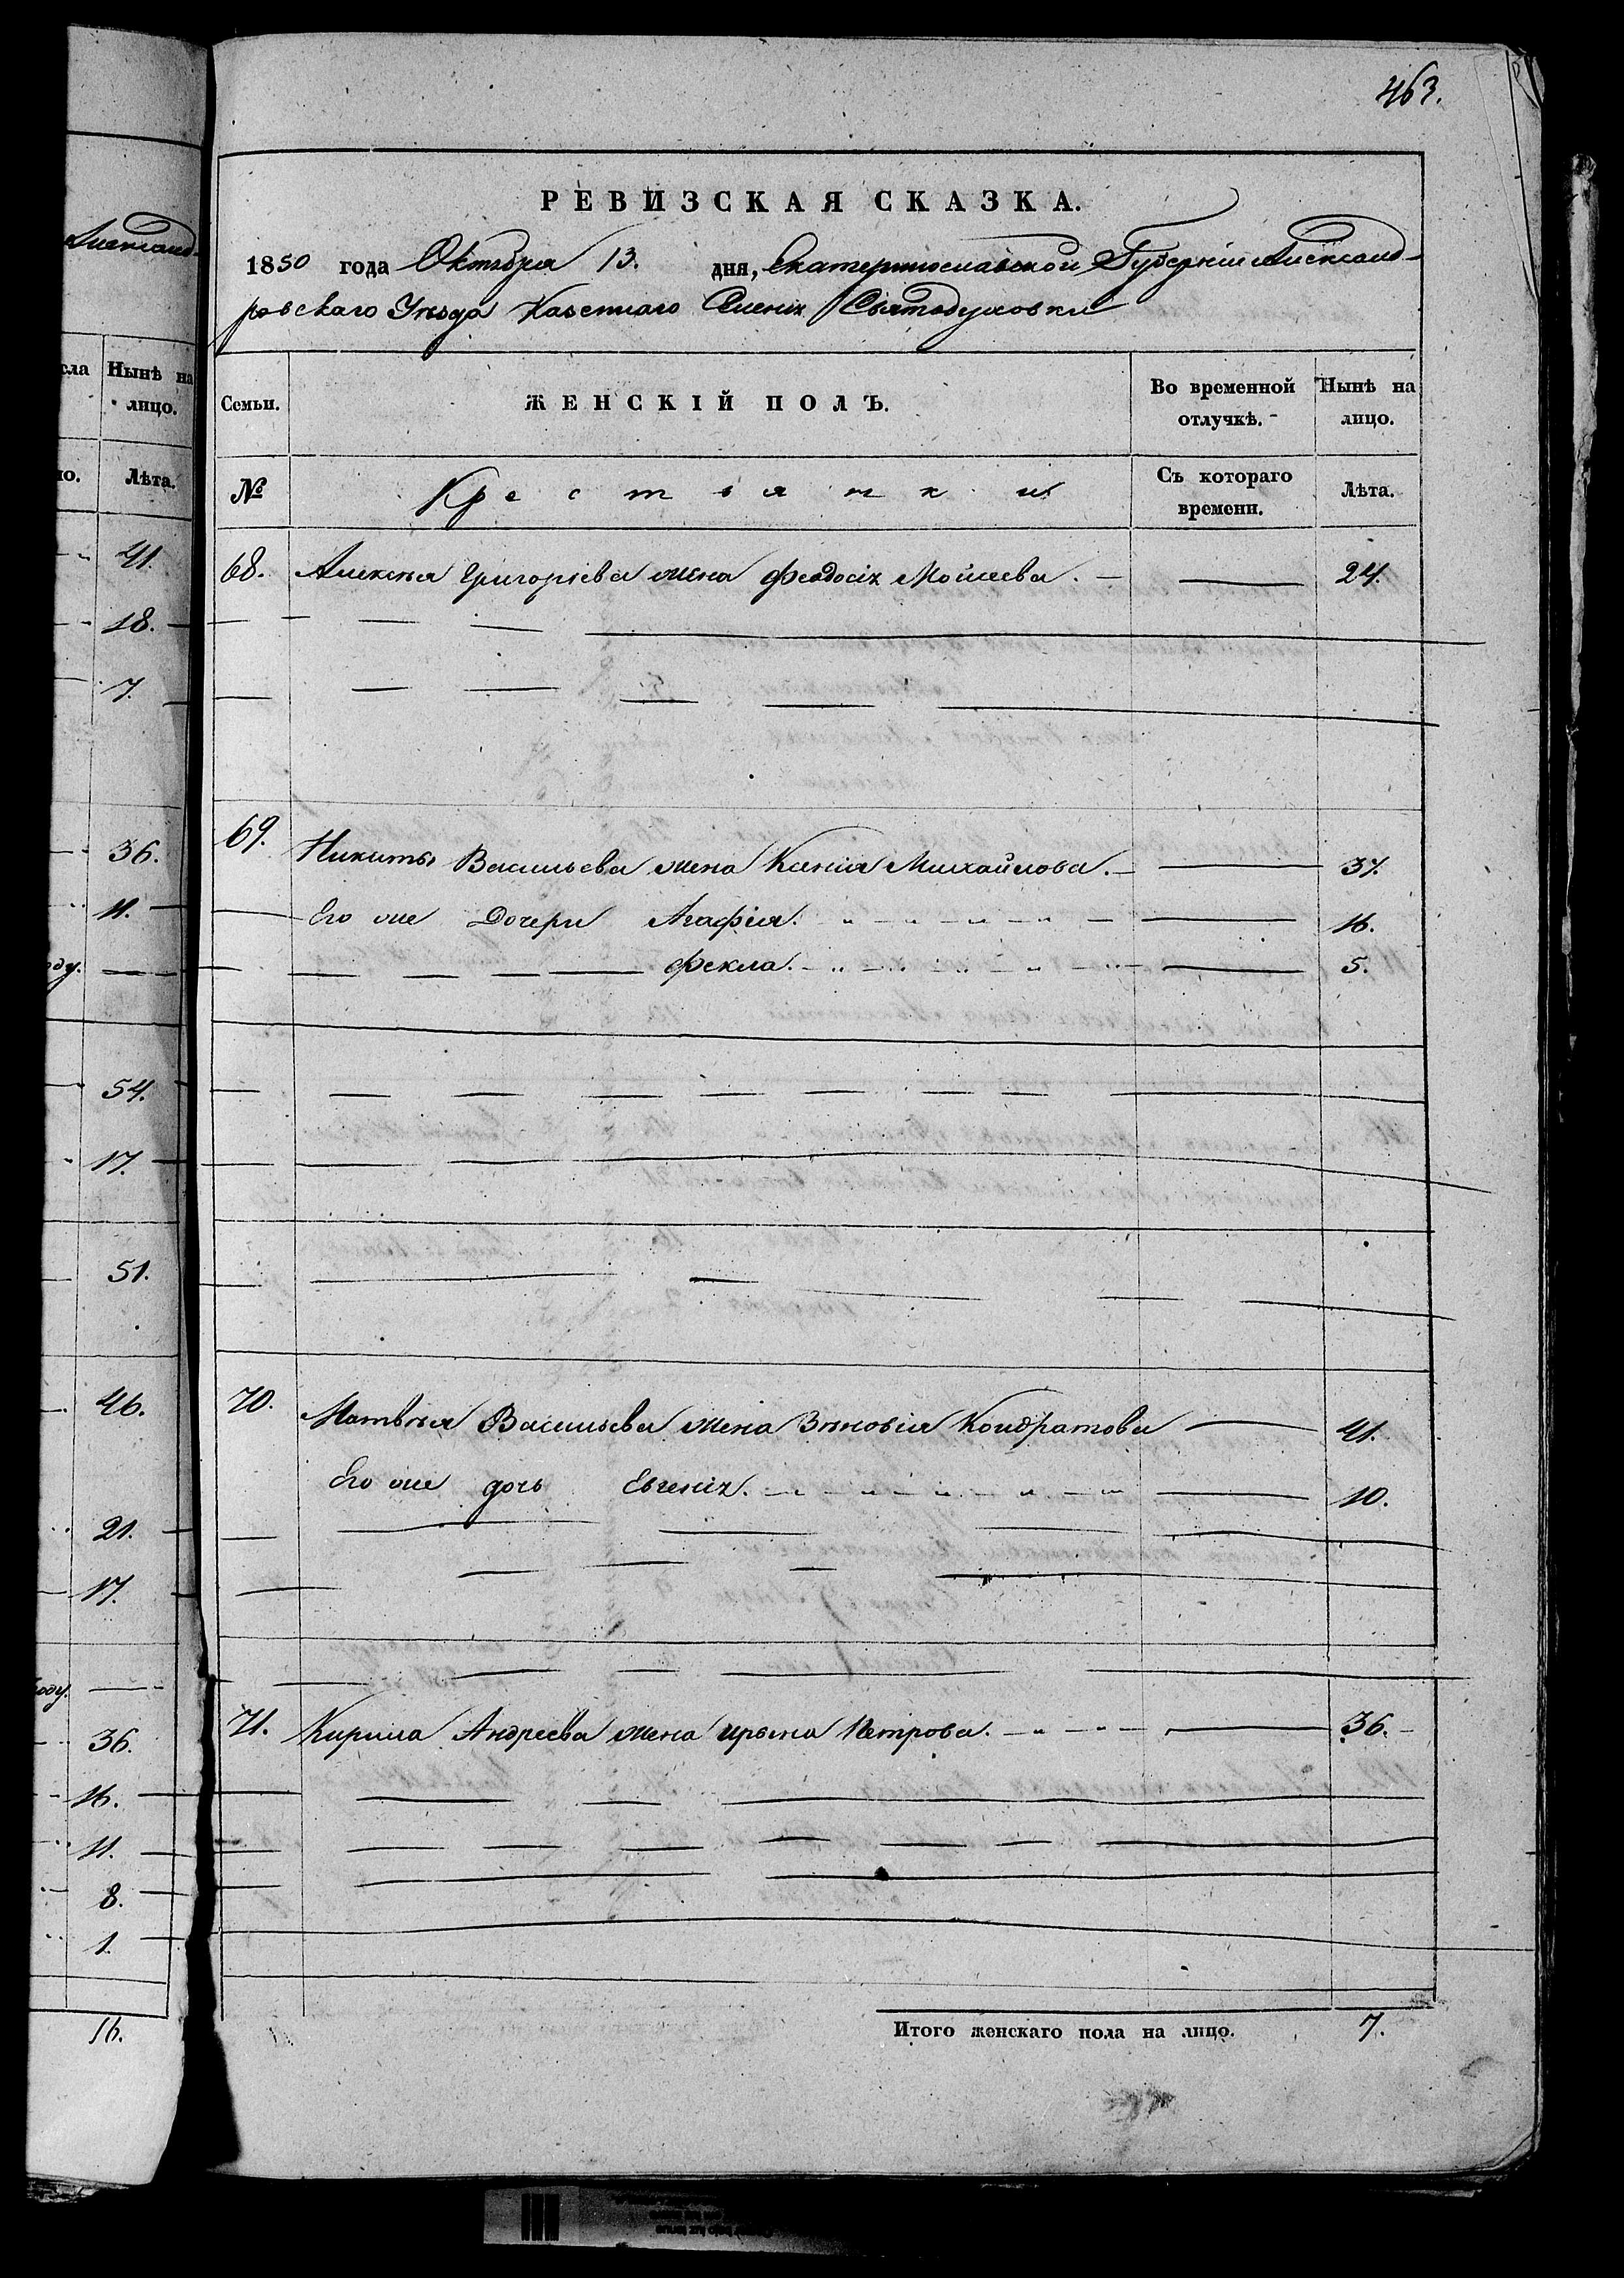 463.
РЕВИЗСКАЯ СКАЗКА.
1850 года Октября 13. дня, Екатеринославской Губерніи Александ-
ровскаго Уѣзда Казеннаго Селенія Святодуховки
Семьи. ЖЕНСКІЙ ПОЛЪ. Во временной отлучкѣ. Нынѣ на лицо.
№ Крестьянки Съ котораго времени. Лѣта.
68. Алексѣя Григорьева жена Феодосія Моисеева. — 24.
69. Никиты Васильева жена Ксенія Михайлова. — 37.
Его же Дочери Агафія. — 16.
Фекла. — 5.
70. Матвѣя Васильева жена Зѣновія Кондратова — 41.
Его же дочь Евгенія. — 10.
71. Кирила Андреева жена Ирына Петрова. — 36.
Итого женскаго пола на лицо. 7.
Александ-
сла Нынѣ на
лицо.
но. Лѣта.
41.
18.
7.
36.
11.
оду. —
54.
17.
51.
46.
21.
17.
году. —
36.
16.
11.
8.
1.
16.